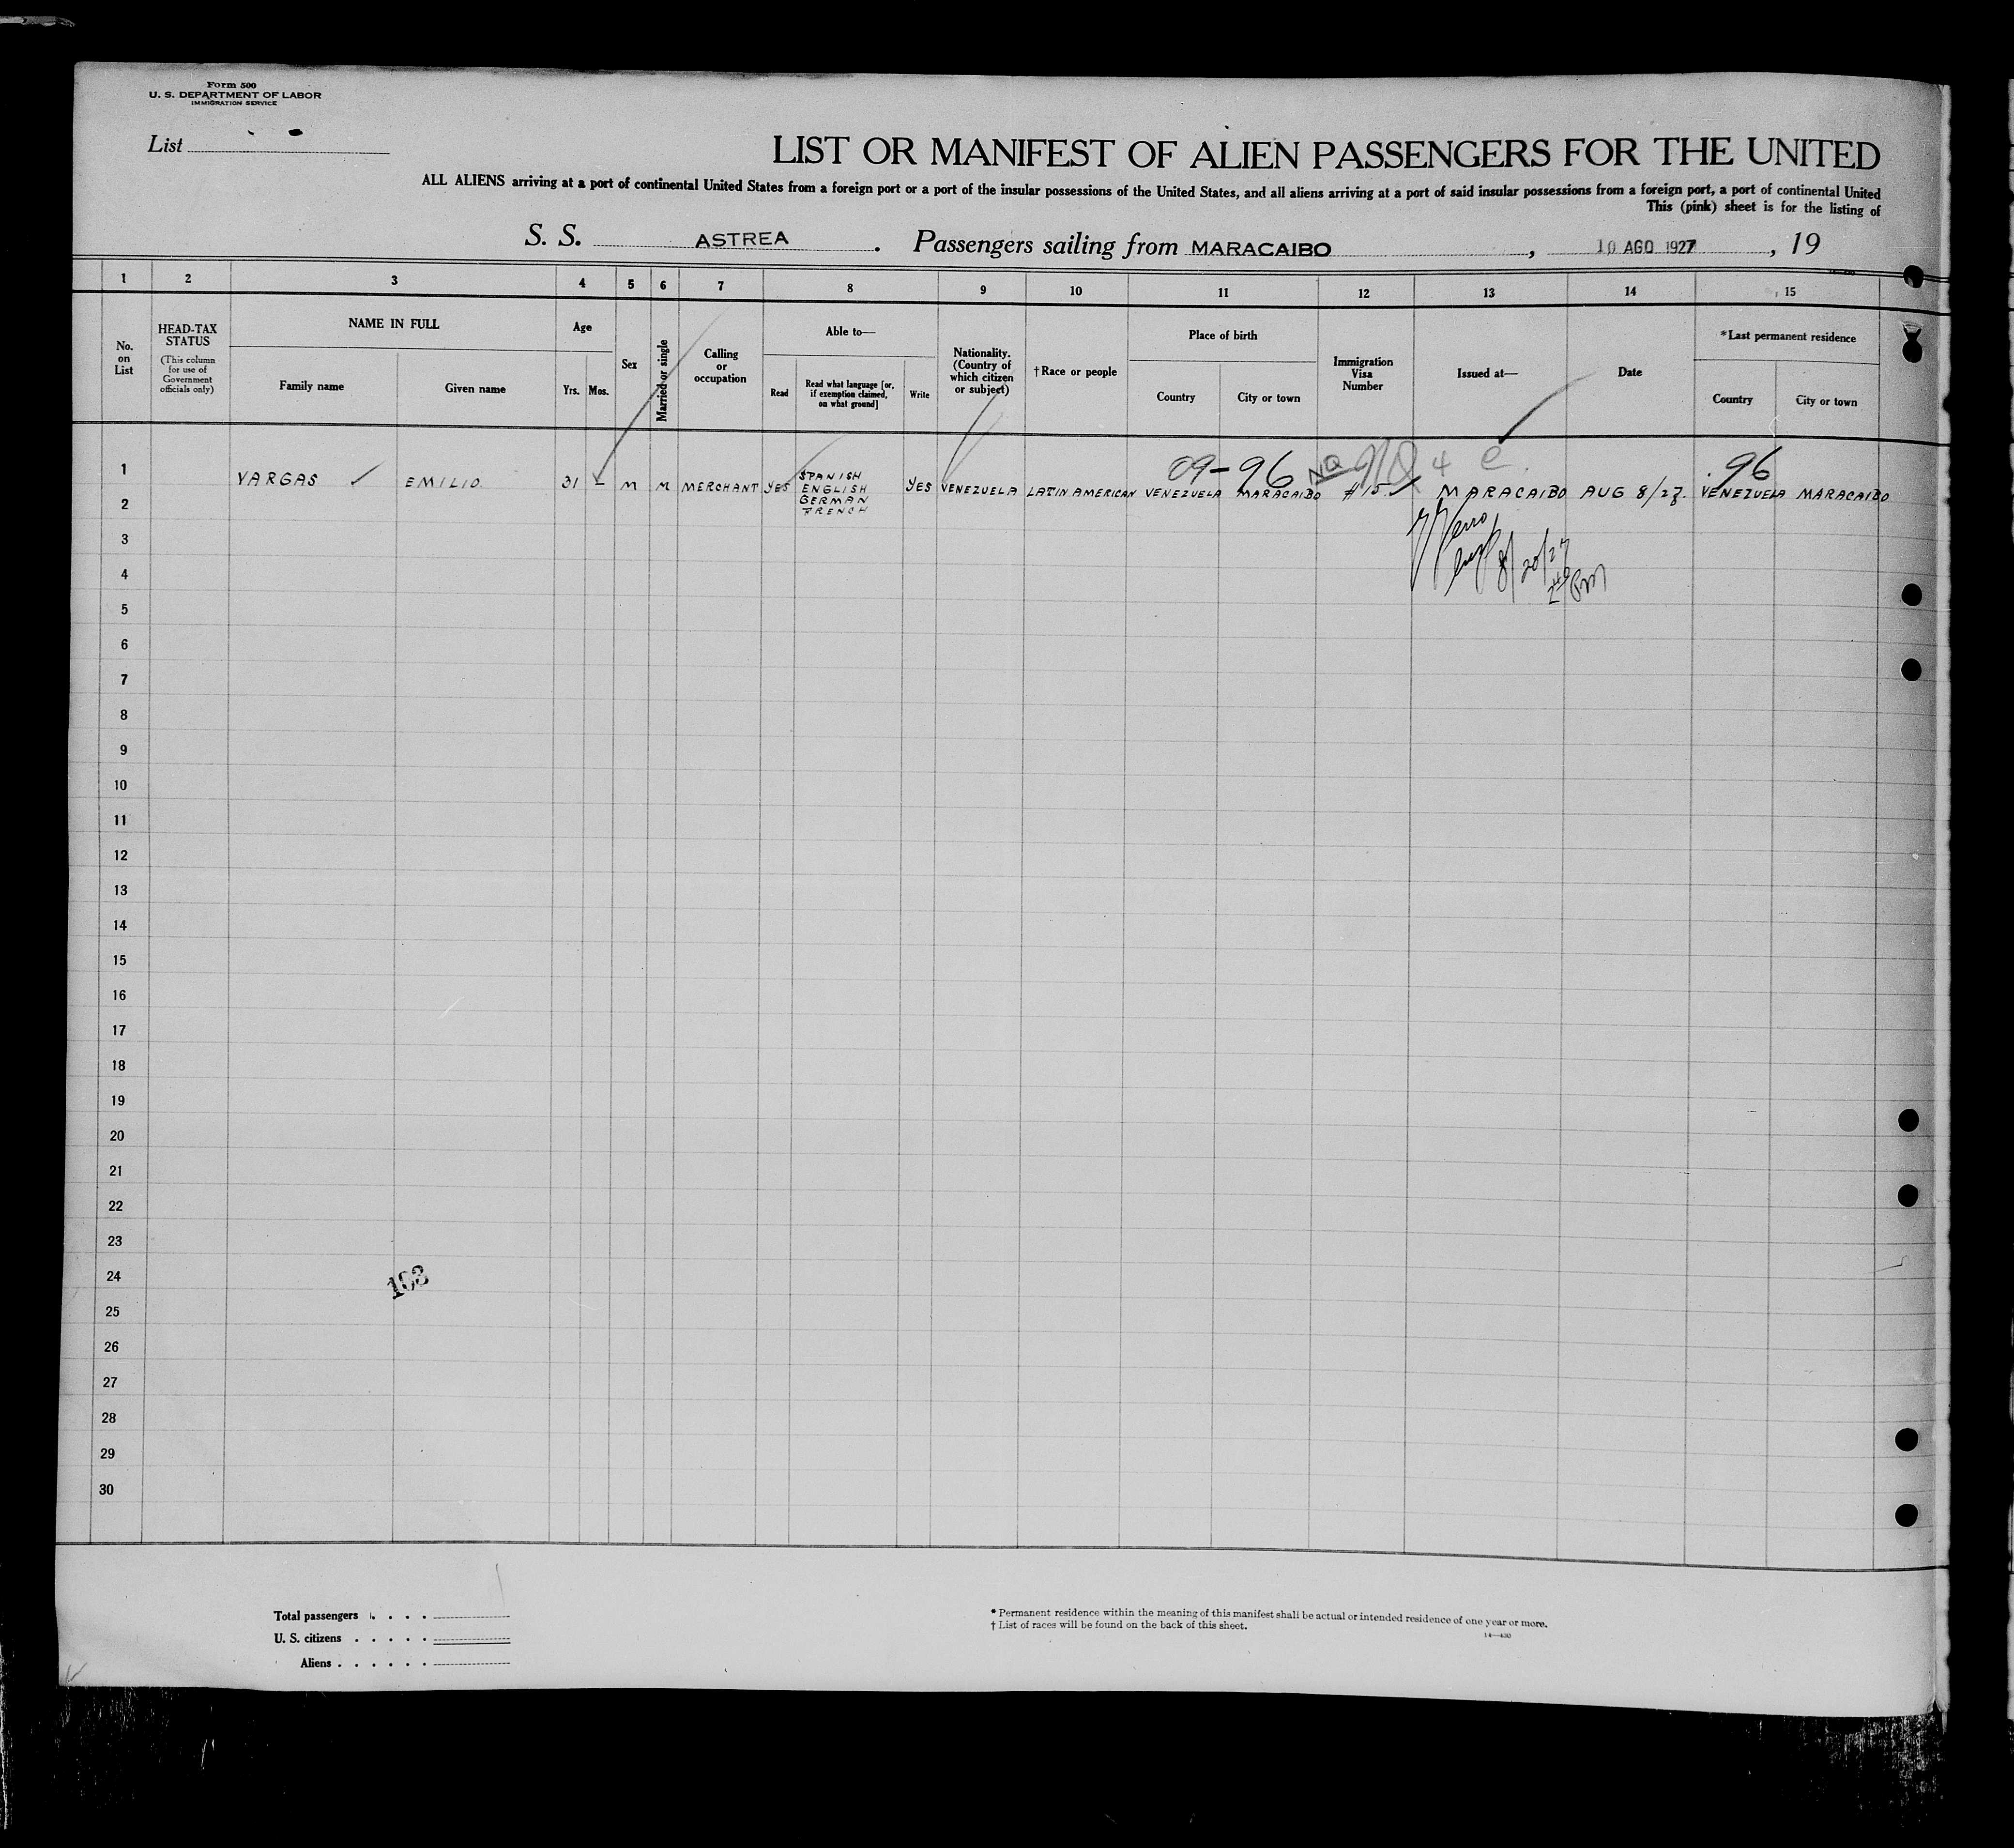 Form 500
U. S. DEPARTMENT OF LABOR
IMMIGRATION SERVICE
List
LIST OR MANIFEST OF ALIEN PASSENGERS FOR THE UNITED
ALL ALIENS arriving at a port of continental United States from a foreign port or a port of the insular possessions of the United States, and all aliens arriving at a port of said insular possessions from a foreign port, a port of continental United
This (pink) sheet is for the listing of
S. S. ASTREA. Passengers sailing from MARACAIBO, 10 AGO 1927, 19
1 2 3 4 5 6 7 8 9 10 11 12 13 14 15
No. on List
HEAD-TAX STATUS
(This column for use of Government officials only)
NAME IN FULL
Family name
Given name
Age
Yrs.
Mos.
Sex
Married or single
Calling or occupation
Able to—
Read
Read what language [or, if exemption claimed, on what ground]
Write
Nationality. (Country of which citizen or subject)
†Race or people
Place of birth
Country
City or town
Immigration Visa Number
Issued at—
Date
*Last permanent residence
Country
City or town
09-96 NQ 4 e 96
1 VARGAS EMILIO 31 - M M MERCHANT YES SPANISH ENGLISH GERMAN FRENCH YES VENEZUELA LATIN AMERICAN VENEZUELA MARACAIBO #15 MARACAIBO AUG 8/27. VENEZUELA MARACAIBO
2
3
8/20/27
4
PM
5
6
7
8
9
10
11
12
13
14
15
16
17
18
19
20
21
22
23
24
103
25
26
27
28
29
30
Total passengers . . . .
U. S. citizens . . . . .
Aliens . . . . . .
* Permanent residence within the meaning of this manifest shall be actual or intended residence of one year or more.
† List of races will be found on the back of this sheet.
14—430